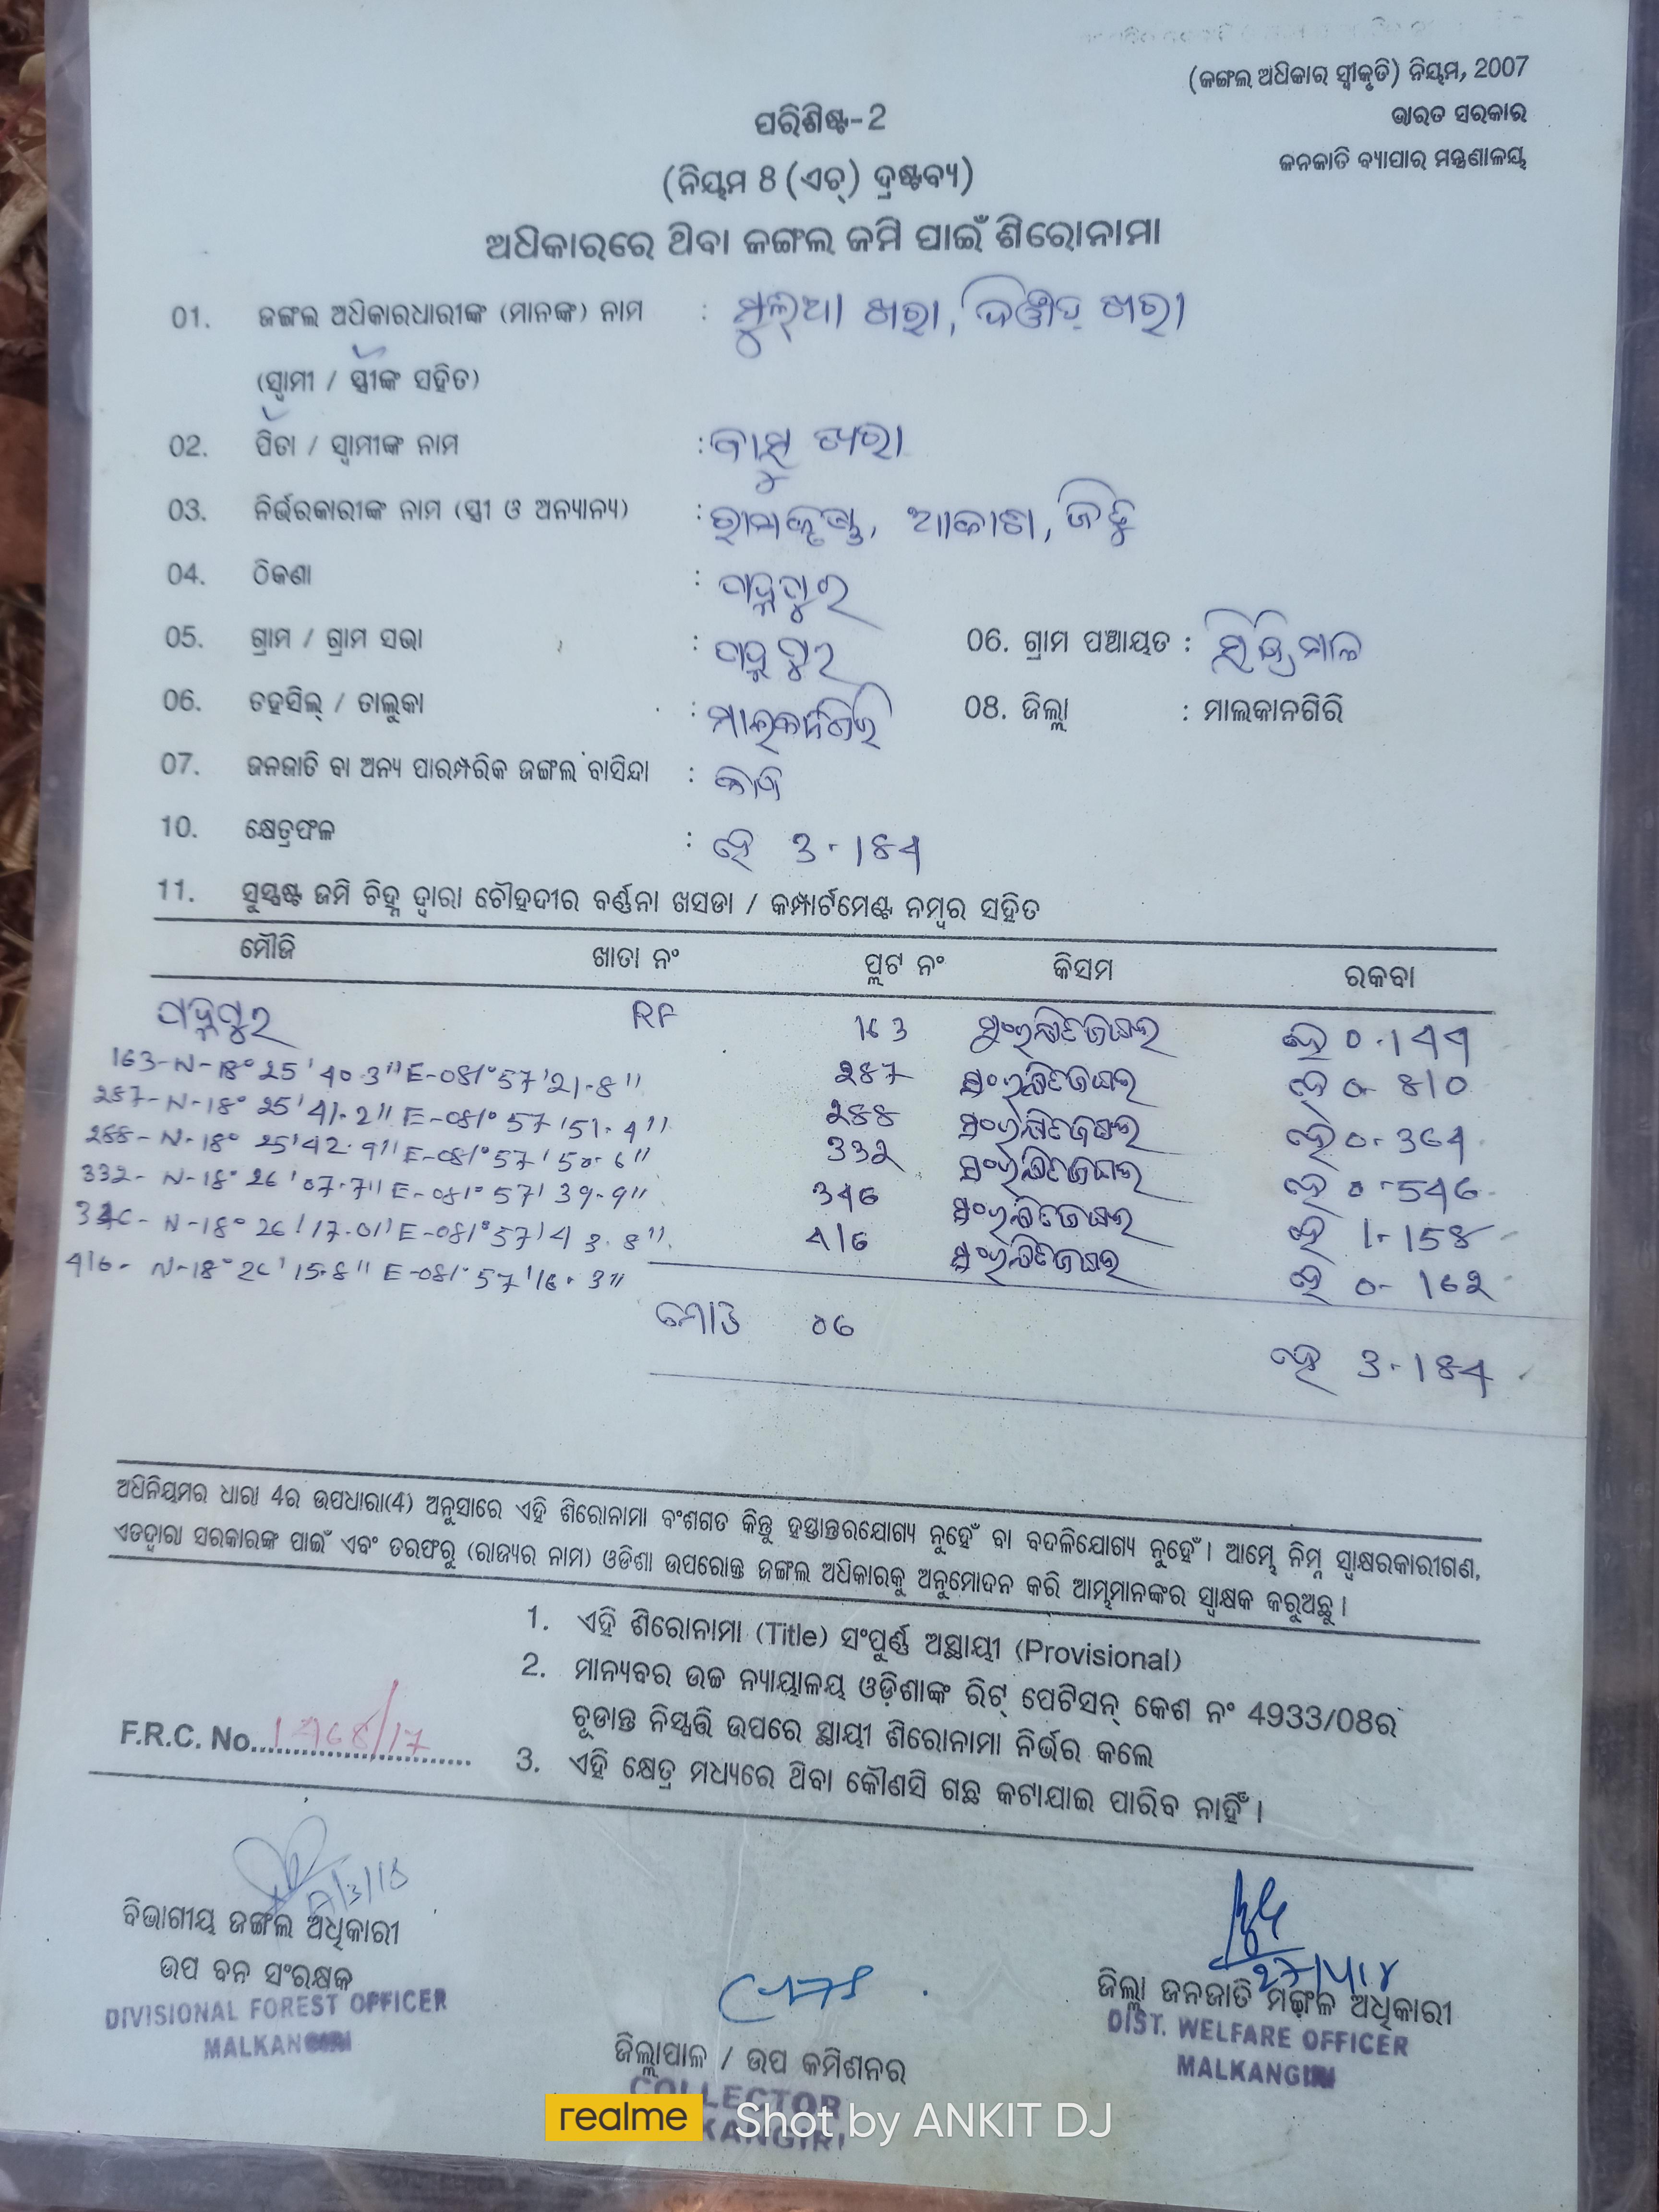 (ଜଙ୍ଗଲ ଅଧିକାର ସ୍ୱୀକୃତି) ନିୟମ, 2007
ଭାରତ ସରକାର
ଜନଜାତି ବ୍ୟାପାର ମନ୍ତ୍ରଣାଳୟ
ପରିଶିଷ୍ଟ-2
(ନିୟମ 8 (ଏଚ୍) ଦ୍ରଷ୍ଟବ୍ୟ)
ଅଧିକାରରେ ଥିବା ଜଙ୍ଗଲ ଜମି ପାଇଁ ଶିରୋନାମା
01. ଜଙ୍ଗଲ ଅଧିକାରଧାରୀଙ୍କ (ମାନଙ୍କ) ନାମ : ଖରା, ଖରା
(ସ୍ୱାମୀ / ସ୍ତ୍ରୀଙ୍କ ସହିତ)
02. ପିତା / ସ୍ୱାମୀଙ୍କ ନାମ : ବାସୁ ଖରା
03. ନିର୍ଭରକାରୀଙ୍କ ନାମ (ସ୍ତ୍ରୀ ଓ ଅନ୍ୟାନ୍ୟ) : ରାମକୃଷ୍ଣ, ଆକାଶ,
04. ଠିକଣା : ପଦ୍ମପୁର
05. ଗ୍ରାମ / ଗ୍ରାମ ସଭା : ପଦ୍ମପୁର 06. ଗ୍ରାମ ପଞ୍ଚାୟତ :
06. ତହସିଲ୍ / ତାଲୁକା : ମାଲକାନଗିରି 08. ଜିଲ୍ଲା : ମାଲକାନଗିରି
07. ଜନଜାତି ବା ଅନ୍ୟ ପାରମ୍ପରିକ ଜଙ୍ଗଲ ବାସିନ୍ଦା :
10. କ୍ଷେତ୍ରଫଳ : ହେ 3.184
11. ସୁସ୍ପଷ୍ଟ ଜମି ଚିହ୍ନ ଦ୍ୱାରା ଚୌହଦୀର ବର୍ଣ୍ଣନା ଖସଡା / କମ୍ପାର୍ଟମେଣ୍ଟ ନମ୍ବର ସହିତ
ମୌଜି ଖାତା ନଂ ପ୍ଲଟ ନଂ କିସମ ରକବା
ପଦ୍ମପୁର RF 163 ହେ 0.144
163-N-18° 25' 40.3" E-081° 57' 21.8" 287 ହେ 0-810
287-N-18° 25' 41.2" E-081° 57' 51.4" 288 ହେ 0.364
288-N-18° 25' 42.9" E-081° 57' 50.6" 332 ହେ 0-546
332-N-18° 26' 07.7" E-081° 57' 39.9" 346 ହେ 1.158
346-N-18° 26' 17.01" E-081° 57' 43.8" 416 ହେ 0-162
416-N-18° 26' 15.8" E-081° 57' 16.3"
ମୋଟ 06 ହେ 3.184
ଅଧିନିୟମର ଧାରା 4ର ଉପଧାରା(4) ଅନୁସାରେ ଏହି ଶିରୋନାମା ବଂଶଗତ କିନ୍ତୁ ହସ୍ତାନ୍ତରଯୋଗ୍ୟ ନୁହେଁ ବା ବଦଳିଯୋଗ୍ୟ ନୁହେଁ। ଆମ୍ଭେ ନିମ୍ନ ସ୍ୱାକ୍ଷରକାରୀଗଣ,
ଏତଦ୍ୱାରା ସରକାରଙ୍କ ପାଇଁ ଏବଂ ତରଫରୁ (ରାଜ୍ୟର ନାମ) ଓଡିଶା ଉପରୋକ୍ତ ଜଙ୍ଗଲ ଅଧିକାରକୁ ଅନୁମୋଦନ କରି ଆମ୍ଭମାନଙ୍କର ସ୍ୱାକ୍ଷକ କରୁଅଛୁ।
1. ଏହି ଶିରୋନାମା (Title) ସଂପୂର୍ଣ୍ଣ ଅସ୍ଥାୟୀ (Provisional)
2. ମାନ୍ୟବର ଉଚ୍ଚ ନ୍ୟାୟାଳୟ ଓଡ଼ିଶାଙ୍କ ରିଟ୍ ପେଟିସନ୍ କେଶ ନଂ 4933/08ର
ଚୂଡାନ୍ତ ନିସ୍ପତ୍ତି ଉପରେ ସ୍ଥାୟୀ ଶିରୋନାମା ନିର୍ଭର କଲେ
F.R.C. No. 1468/17
3. ଏହି କ୍ଷେତ୍ର ମଧ୍ୟରେ ଥିବା କୌଣସି ଗଛ କଟାଯାଇ ପାରିବ ନାହିଁ।
ବିଭାଗୀୟ ଜଙ୍ଗଲ ଅଧିକାରୀ
ଉପ ବନ ସଂରକ୍ଷକ
DIVISIONAL FOREST OFFICER
MALKANGIRI
ଜିଲ୍ଲାପାଳ / ଉପ କମିଶନର
COLLECTOR
ଜିଲ୍ଲା ଜନଜାତି ମଙ୍ଗଳ ଅଧିକାରୀ
DIST. WELFARE OFFICER
MALKANGIRI
realme Shot by ANKIT DJ